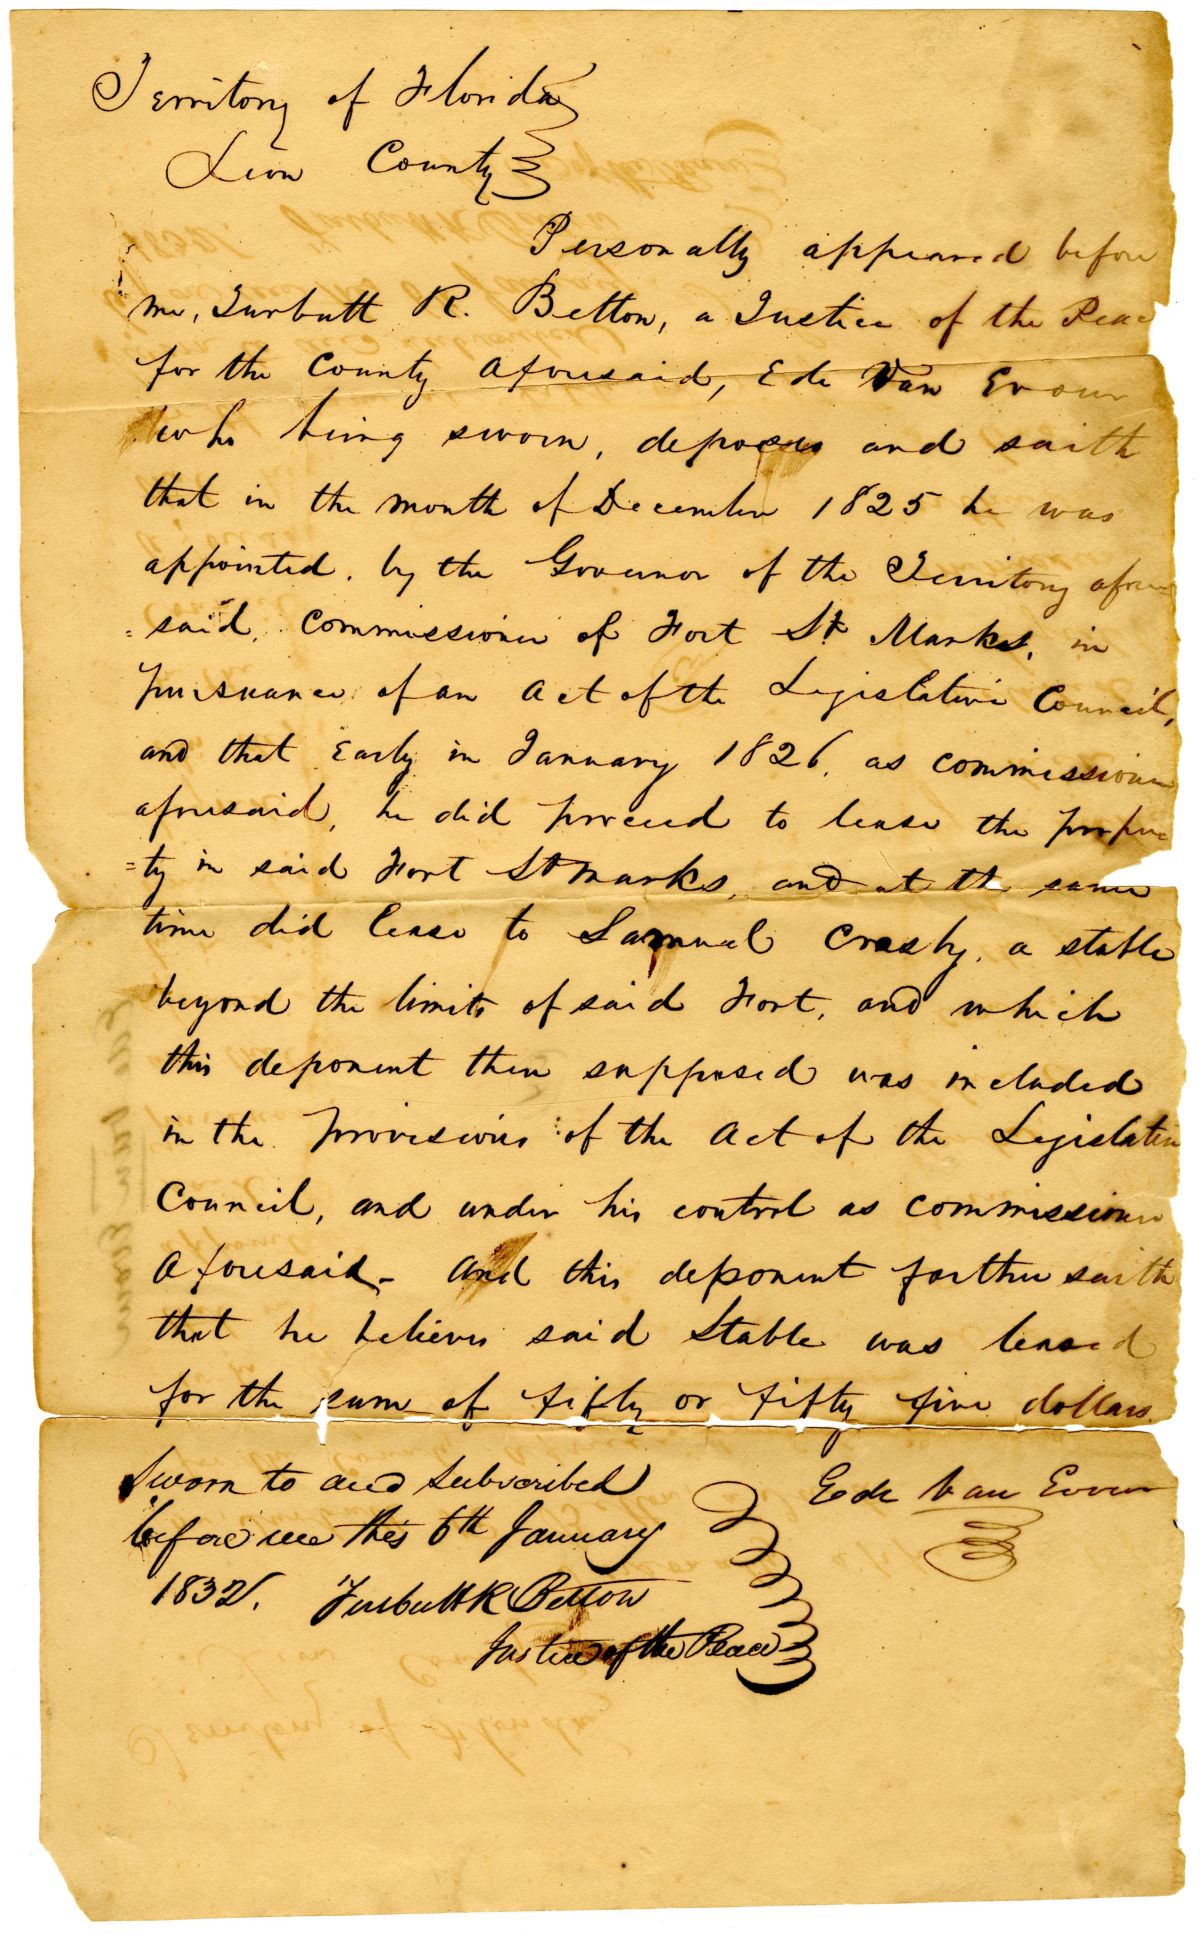 Territory of Florida
Leon County
Personally appeared before
me, Turbutt R. Betton, a Justice of the Peace
for the County Aforesaid, Ede Van Evour
who being sworn, deposes and saith
that in the month of December 1825 he was
appointed, by the Governor of the Territory afore
= said, Commissioner of Fort St Marks, in
pursuance of an Act of the Legislative Council,
and that Early in January 1826, as commissioner
aforesaid, he did proceed to lease the proper
=ty in said Fort St Marks, and at the same
time did lease to Samuel Crosby, a stable
beyond the limits of said Fort, and which
this deponent then supposed was included
in the provisions of the Act of the Legislative
Council, and under his control as commissioner
Aforesaid - And this deponent further saith
that he believes said Stable was leased
for the sum of fifty or fifty five dollars
Sworn to and subscribed
before me this 6th January
1832. Turbutt R Betton
Justice of the Peace
Ede Van Evour